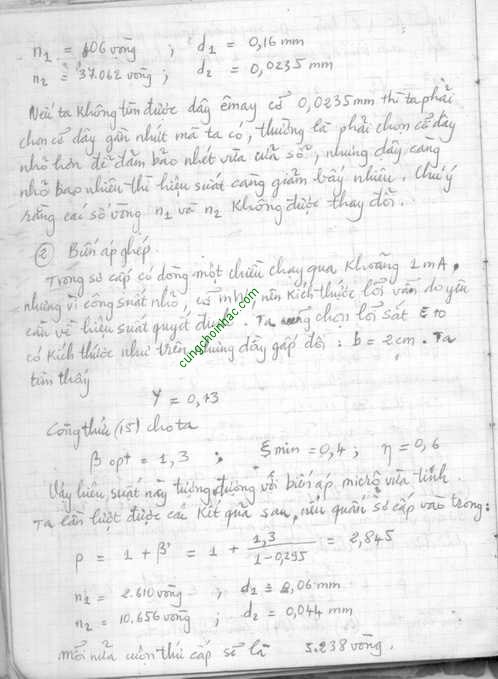 n₁ = 106 vòng ; d₁ = 0,16 mm
n₂ = 37.062 vòng ; d₂ = 0,0235 mm
Nếu ta không tìm được dây êmay cỡ 0,0235mm thì ta phải
chọn cỡ dây gần nhất mà ta có, thường là phải chọn cỡ dây
nhỏ hơn để đảm bảo nhét vừa cửa sổ, nhưng dây càng
nhỏ bao nhiêu thì hiệu suất càng giảm bấy nhiêu. Chú ý
rằng các số vòng n₁ và n₂ không được thay đổi.
② Biến áp ghép.
Trong sơ cấp có dòng một chiều chạy qua khoảng 1mA,
nhưng vì công suất nhỏ, cỡ mW, nên kích thước lõi vẫn do yêu
cầu về hiệu suất quyết định. Ta chọn lõi sắt E10
có kích thước như trên nhưng dầy gấp đôi : b = 2cm. Ta
tìm thấy
cungchoinhac.com
Y = 0,13
Công thức (15) cho ta
β opt = 1,3 ; ξ min = 0,4 ; η = 0,6
Vậy hiệu suất này tương đương với biến áp micrô vừa tính.
Ta lần lượt được các kết quả sau, nếu quấn sơ cấp vào trong:
ρ = 1 + β' = 1 + 1,3 / 1-0,295 = 2,845
n₁ = 2.610 vòng ; d₁ = 0,06 mm
n₂ = 10.656 vòng ; d₂ = 0,044 mm
mỗi nửa cuộn thứ cấp sẽ là 5.238 vòng.